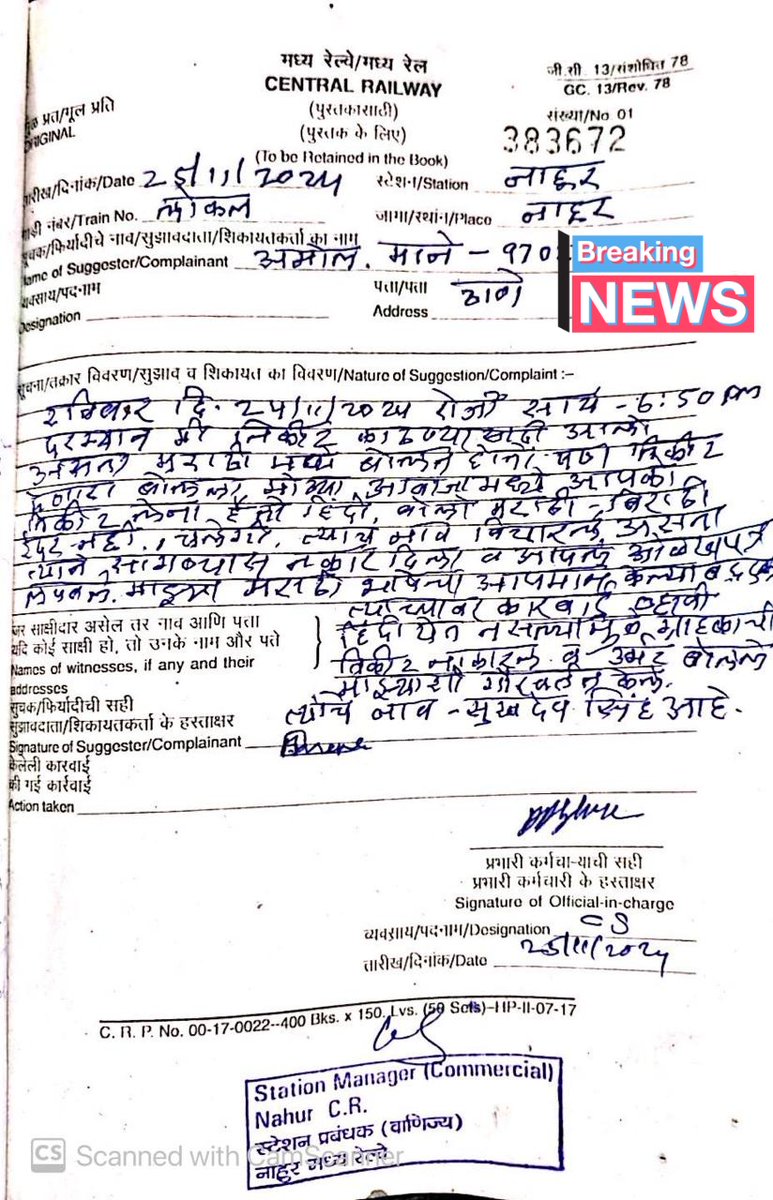 मध्य रेल्वे/मध्य रेल
CENTRAL RAILWAY
(पुस्तकासाठी)
(पुस्तक के लिए)
(To be Retained in the Book)
जी.सी. 13/संशोधित 78
GC. 13/Rev. 78
संख्या/No 01
383672
प्रत/मूल प्रति
ORIGINAL
तारीख/दिनांक/Date 25/11/2024
स्टेशन/Station नाहूर
गाडी नंबर/Train No. लोकल
जागा/स्थान/Place नाहूर
सूचक/फिर्यादीचे नाव/सुझावदाता/शिकायतकर्ता का नाम
Name of Suggester/Complainant अमोल. माने - 970
Breaking
NEWS
व्यवसाय/पदनाम
Designation
पत्ता/पता
Address ठाणे
सूचना/तक्रार विवरण/सुझाव व शिकायत का विवरण/Nature of Suggestion/Complaint :-
रविवार दि. 24/11/2024 रोजी सायं - 6:50 pm
दरम्यान मी तिकीट काढण्यासाठी आलो
असता मराठी मध्ये बोलत होतो पण तिकीट
देणारा बोलला मोठ्या आवाजामध्ये आपको
तिकीट लेना है तो हिंदी बोलो मराठी-बिराठी
इदर नही चलेगी, त्याचे नाव विचारले असता
त्याने सांगण्यास नकार दिला व आपले ओळखपत्र
लपवले. माझ्या मराठी भाषेचा अपमान केल्याबद्दल
त्याच्यावर कारवाई व्हावी
हिंदी येत नसल्यामुळे ग्राहकाची
तिकीट नाकारले व उर्मट बोलले
माझ्याशी गैरवर्तन केले.
त्याचे नाव - सुखदेव सिंह आहे.
जर साक्षीदार असेल तर नाव आणि पत्ता
यदि कोई साक्षी हो, तो उनके नाम और पते
Names of witnesses, if any and their
addresses
सुचक/फिर्यादीची सही
सुझावदाता/शिकायतकर्ता के हस्ताक्षर
Signature of Suggester/Complainant
केलेली कारवाई
की गई कार्रवाई
Action taken
प्रभारी कर्मचा-याची सही
प्रभारी कर्मचारी के हस्ताक्षर
Signature of Official-in-charge
व्यवसाय/पदनाम/Designation CS
तारीख/दिनांक/Date 25/11/2024
C. R. P. No. 00-17-0022--400 Bks. x 150. Lvs. (50 Sets)-HP-II-07-17
Station Manager (Commercial)
Nahur C.R.
स्टेशन प्रबंधक (वाणिज्य)
नाहुर मध्य रेलवे
CS Scanned with CamScanner